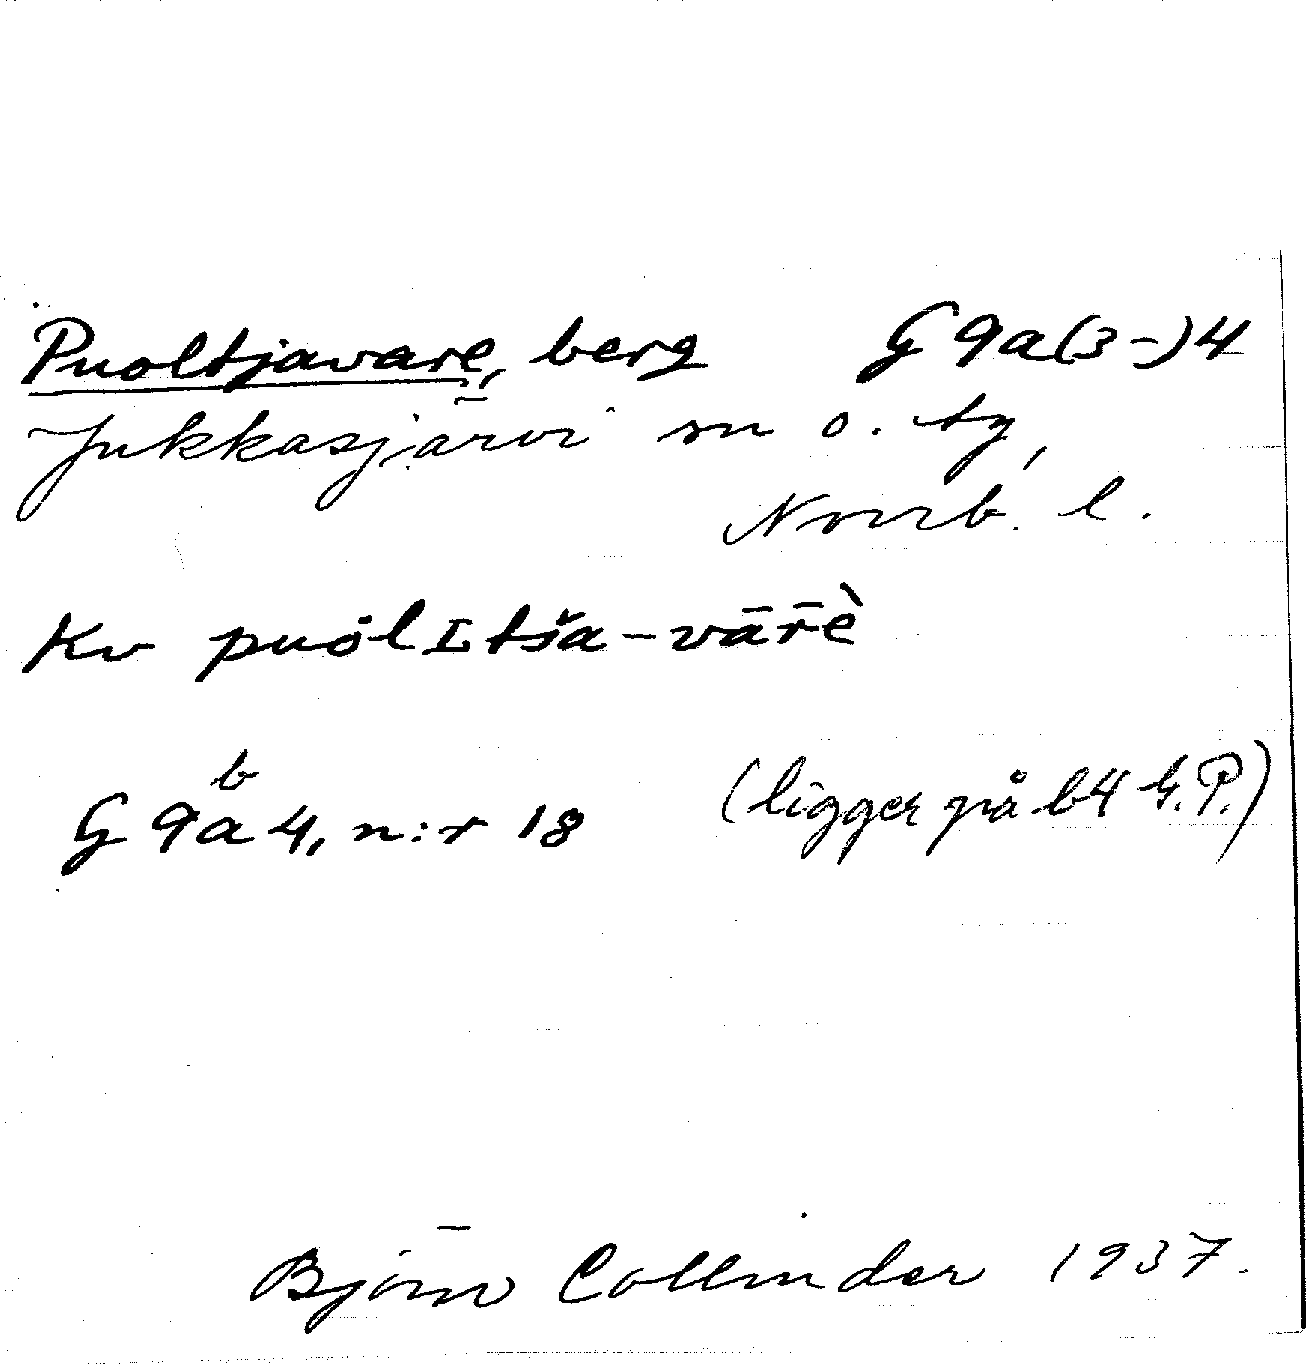 Puoltjavare, berg G 9a(3-)4
Jukkasjärvi sn o. tg,
Norrb. l.
Kv puȯlʟtša-vār̄è
b
G 9a 4, n:r 18 (ligger på b4 G.P.)
Björn Collinder 1937.